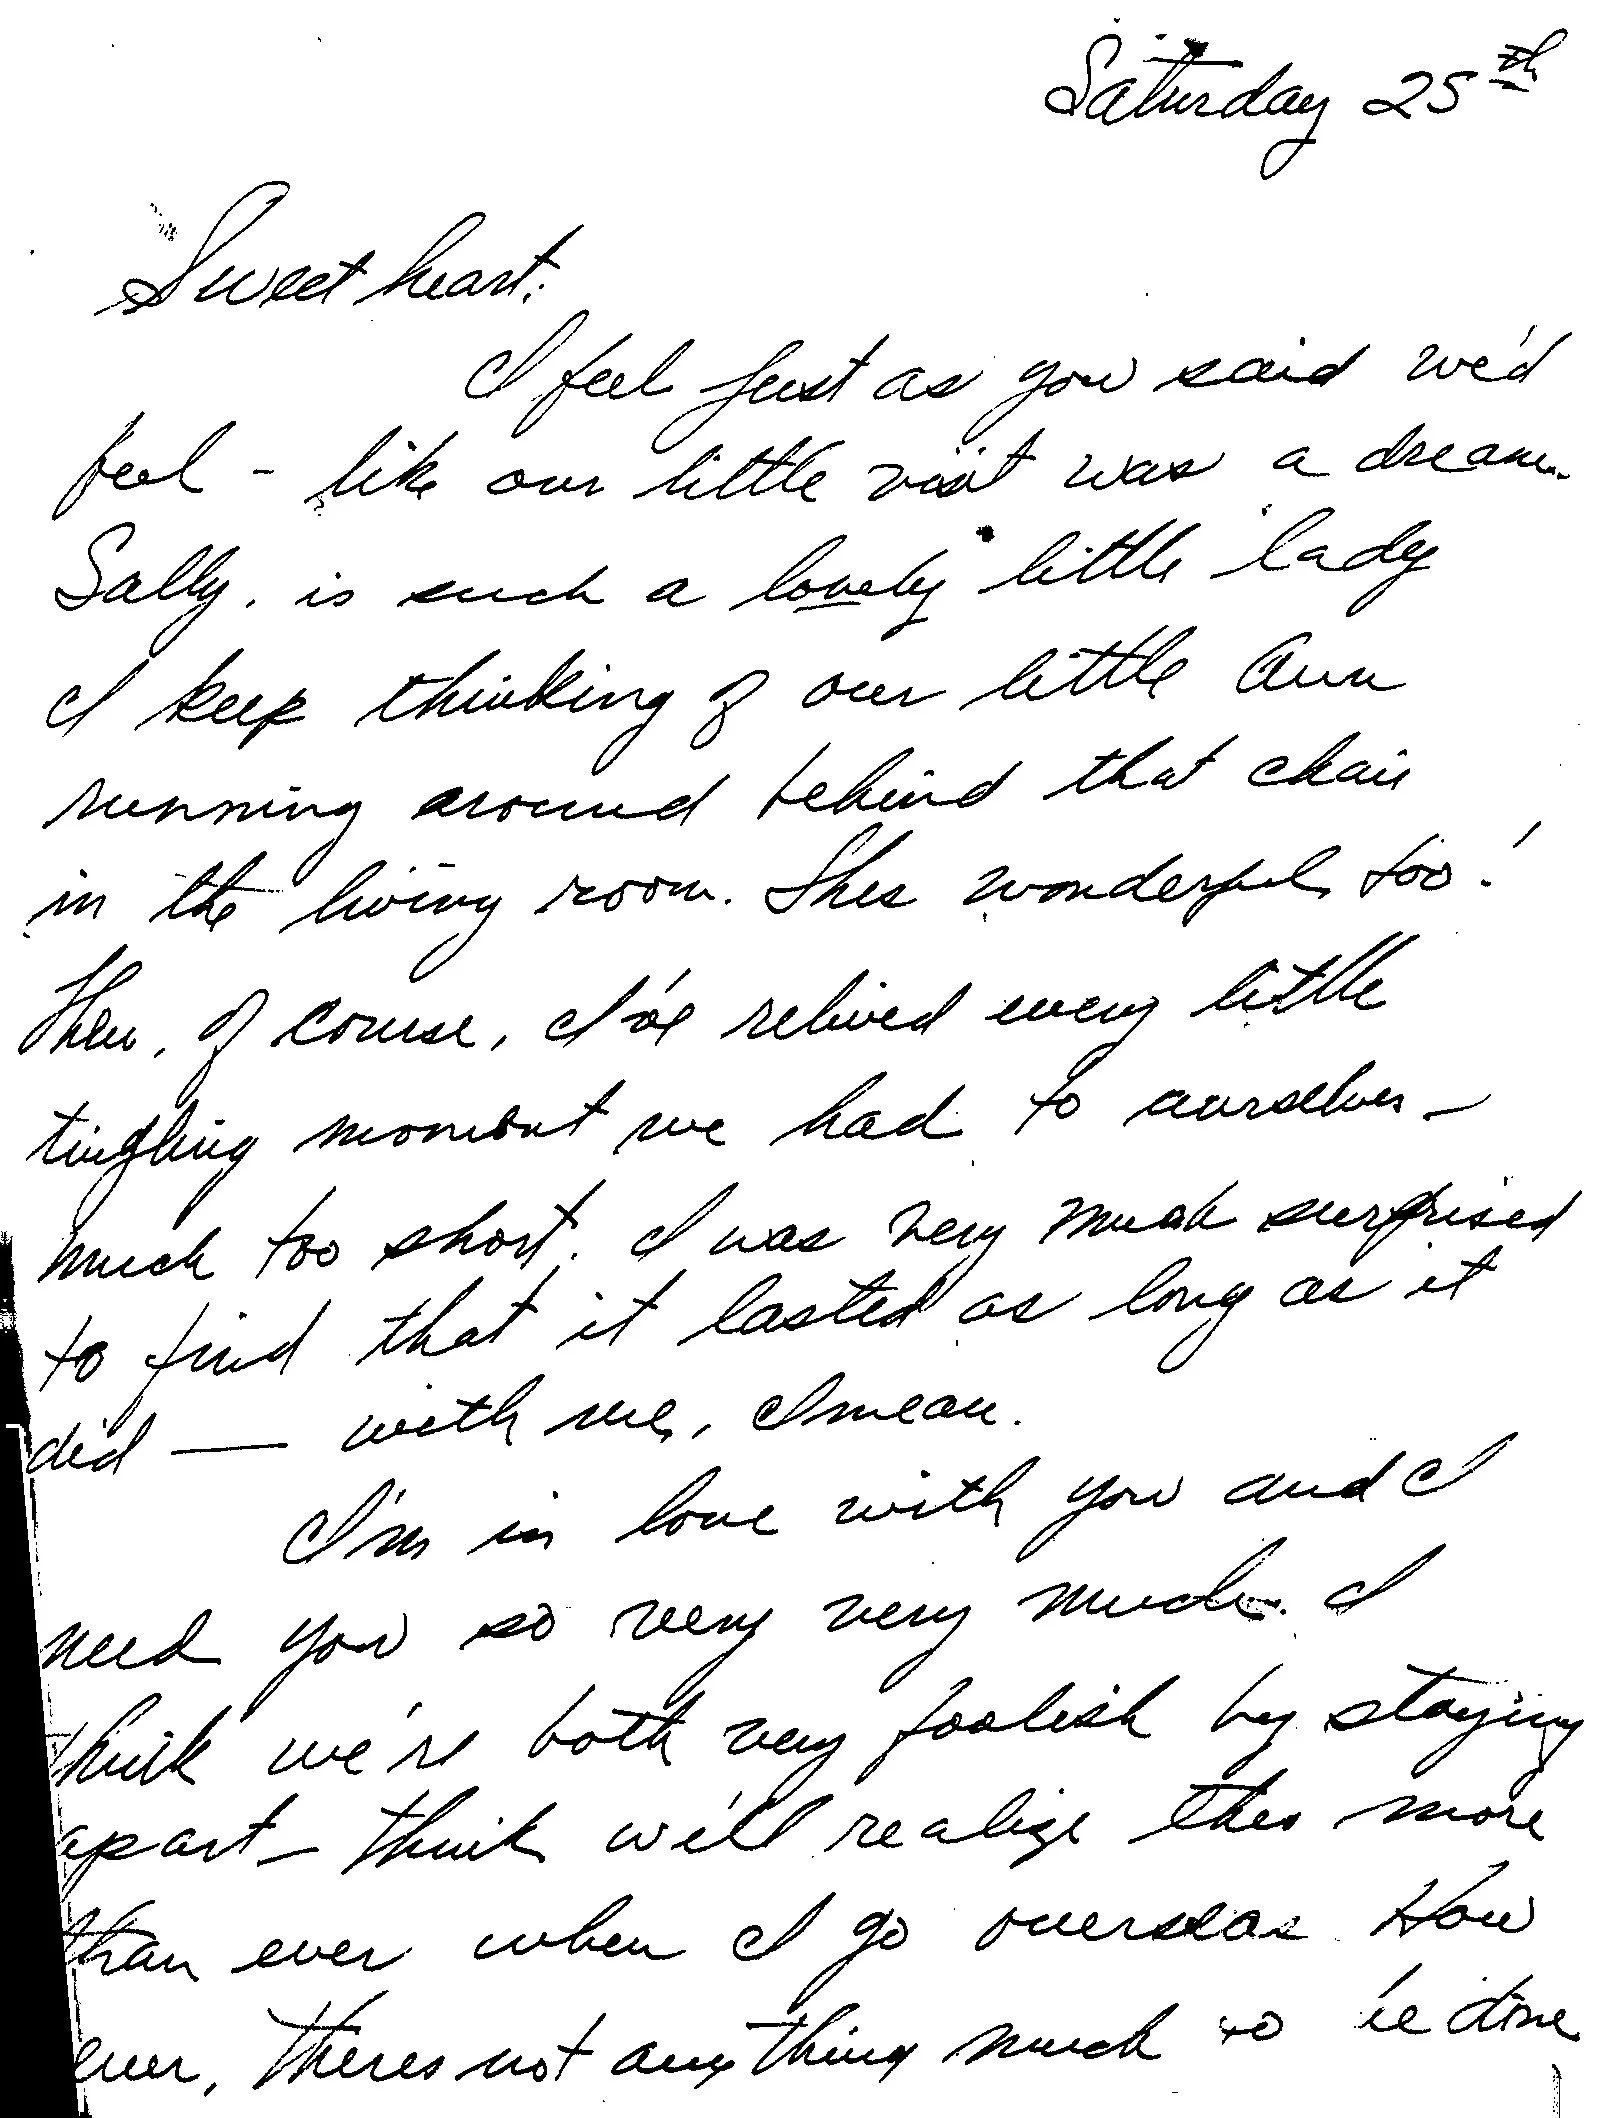 Saturday 25th
Sweet heart:
I feel just as you said we'd
feel - like our little visit was a dream.
Sally, is such a lovely little lady
I keep thinking of our little Ann
running around behind that chair
in the living room. Shes wonderful too!
Then, of course, I've relived every little
tingling moment we had to ourselves -
much too short. I was very much surprised
to find that it lasted as long as it
did — with me, I mean.
I'm in love with you and I
need you so very very much. I
think we're both very foolish by staying
apart - think we'll realize this more
than ever when I go overseas. How
ever, theres not anything much to be done